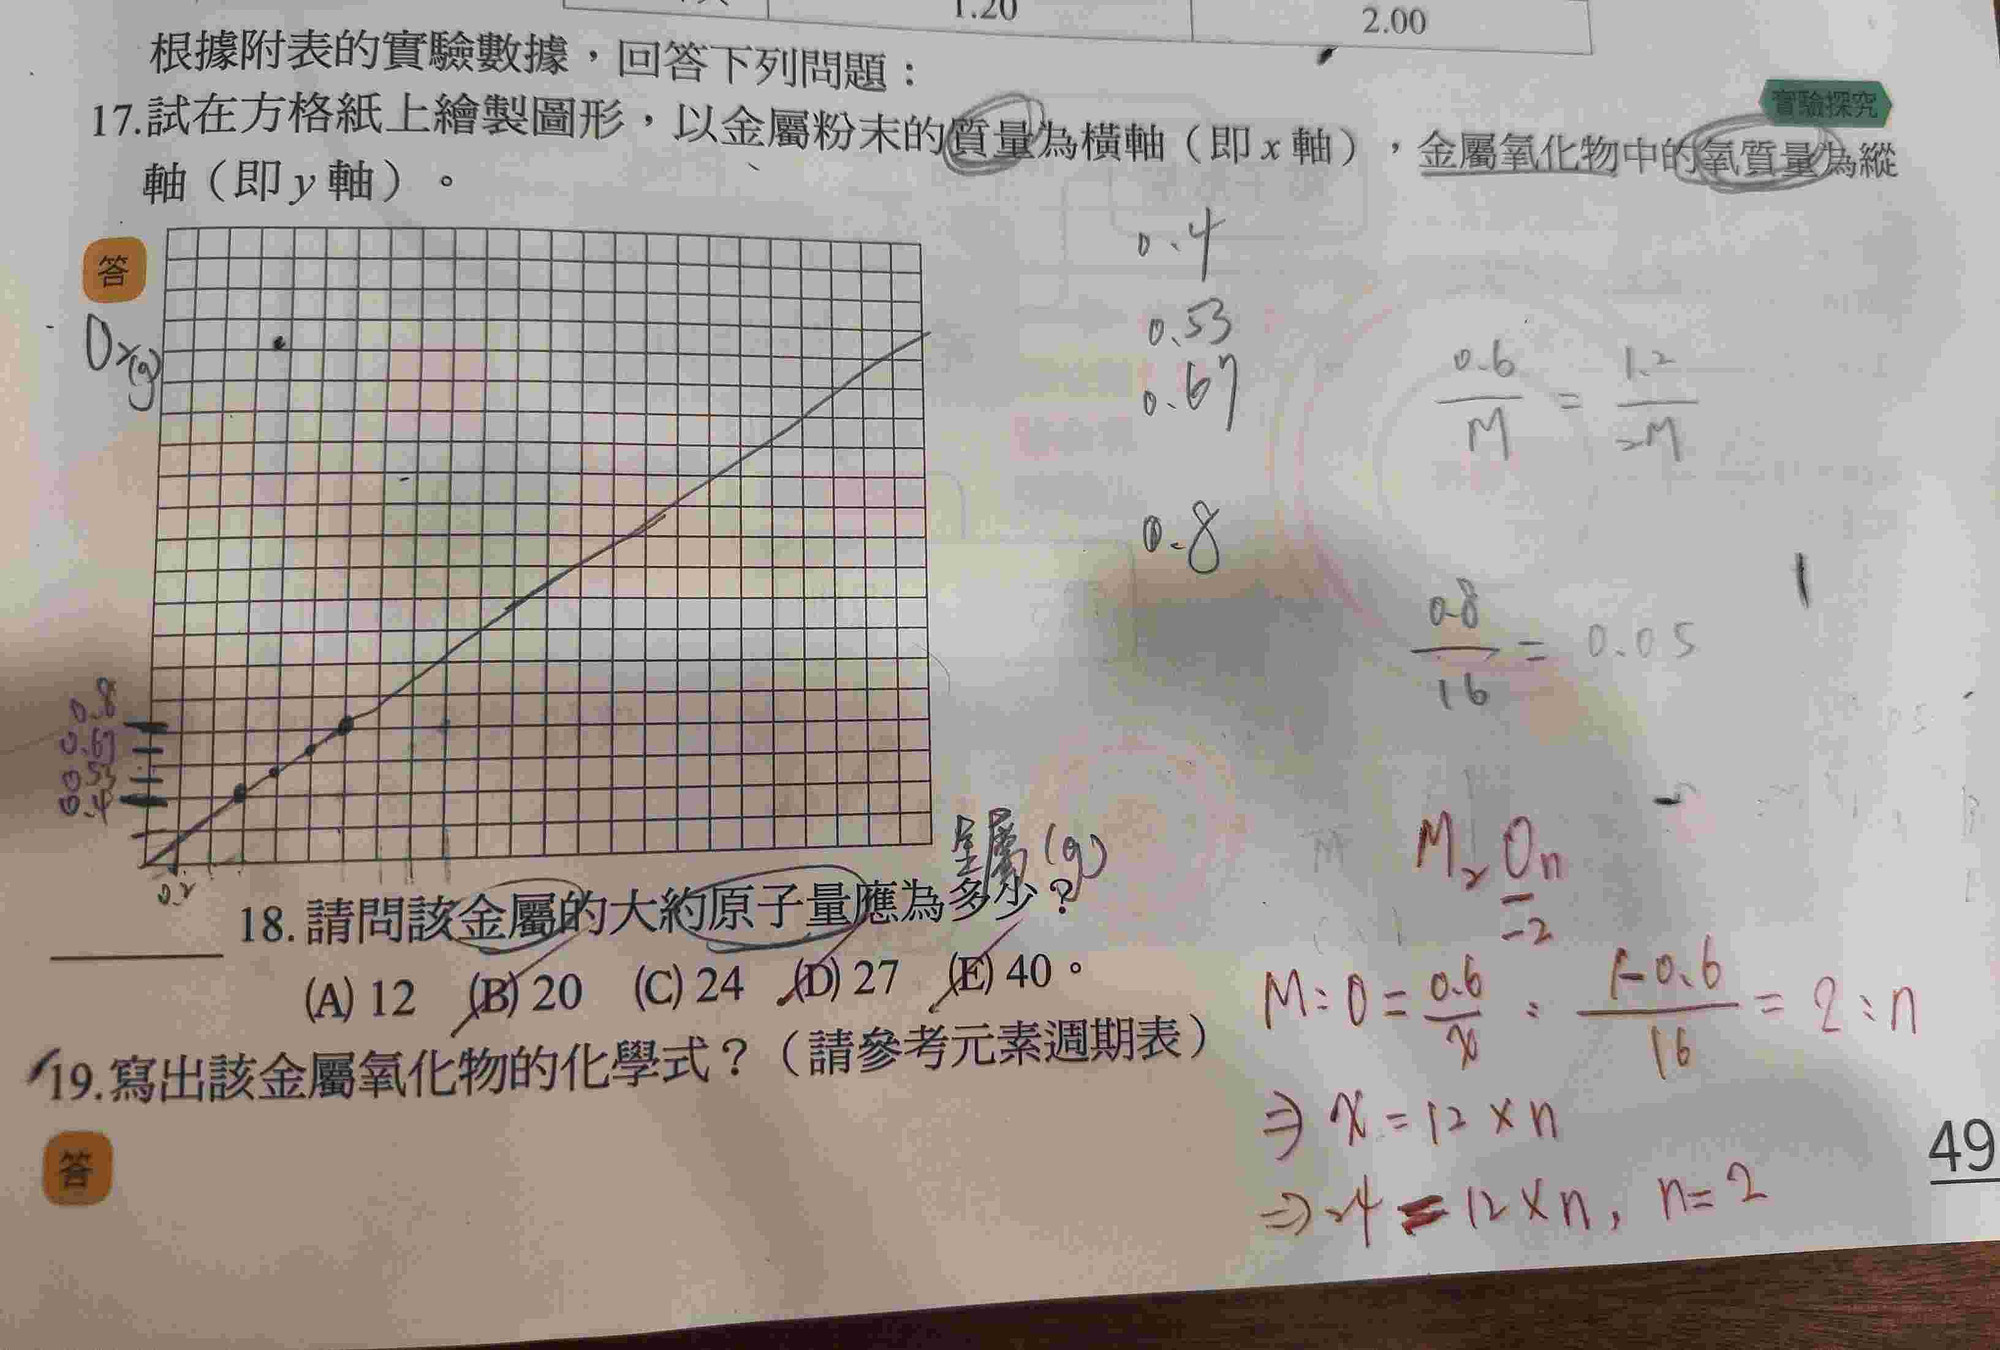 1.20 2.00
根據附表的實驗數據，回答下列問題：
實驗探究
17.試在方格紙上繪製圖形，以金屬粉末的質量為橫軸（即x軸），金屬氧化物中的氧質量為縱
軸（即y軸）。
答
0.4
0.53
0.67
0.8
0.6/M = 1.2/2M
0.8/16 = 0.05
0.8
0.67
0.53
0.4
0.2
金屬(g)
18.請問該金屬的大約原子量應為多少？
(A) 12 (B) 20 (C) 24 (D) 27 (E) 40。
19.寫出該金屬氧化物的化學式？（請參考元素週期表）
答
M₂On
-2
M:O = 0.6/x : 1-0.6/16 = 2:n
⇒ x = 12×n
⇒ 24 = 12×n, n=2
49